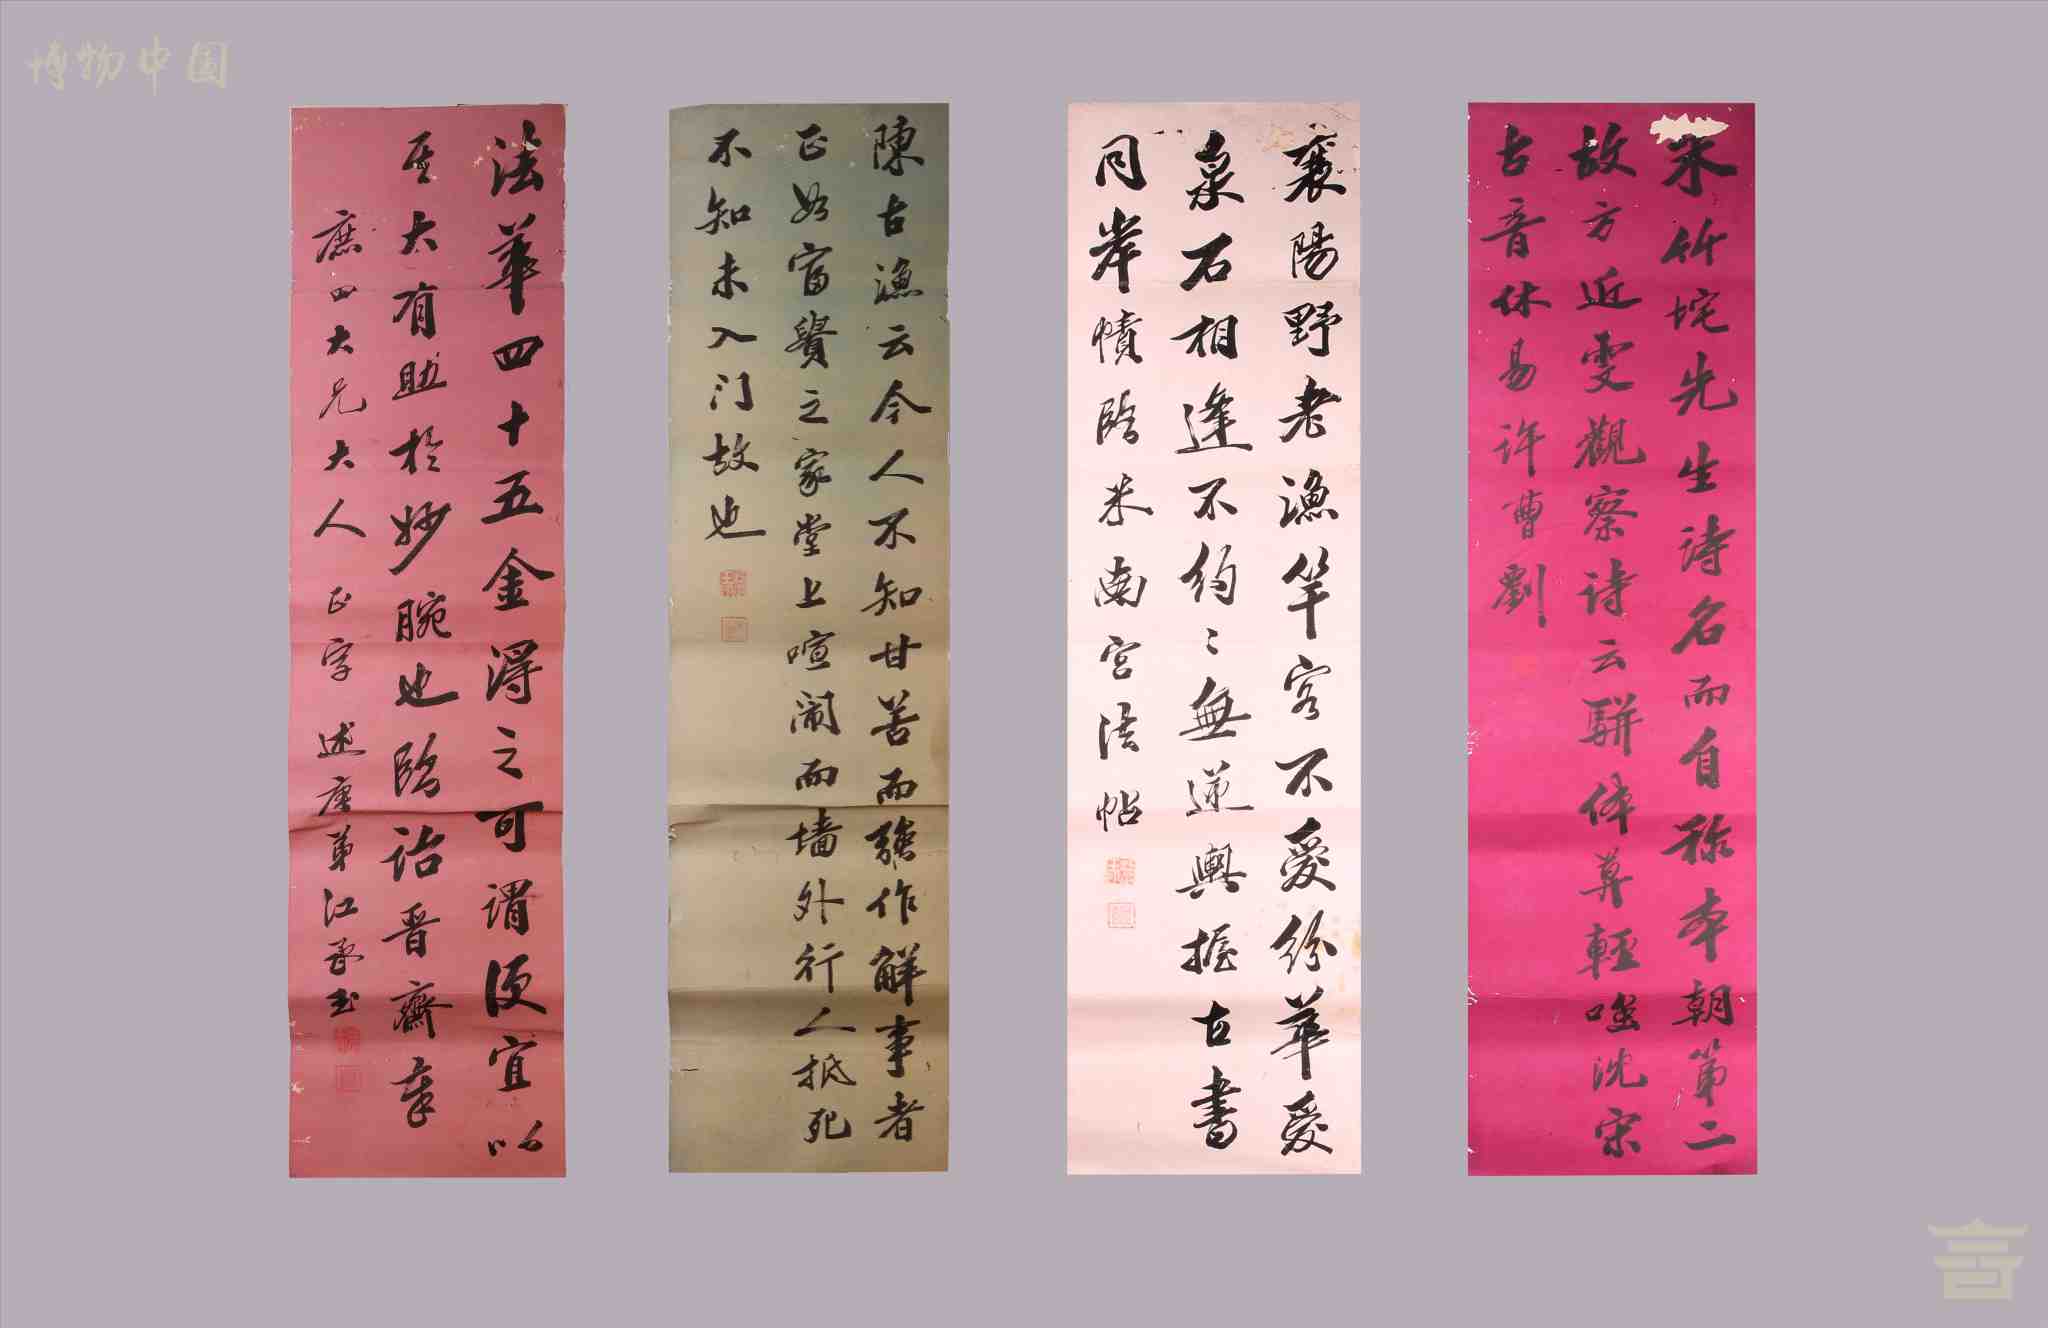 博物中国
朱竹垞先生诗名而自称本朝第二
故方近雯觀察诗云駢体莫輕嗤沈宋
古音休易许曹劉
襄陽野老漁竿客不愛紛華愛
泉石相逢不約〻無逆輿握古書
同岸幘臨米南宫法帖
陳古漁云今人不知甘苦而強作解事者
正如富貴之家堂上喧闹而墙外行人抵死
不知未入门故也
法華四十五金得之可謂便宜以
其太有助於妙腕也臨詒晋齋章
庶四大兄大人正字 述唐弟江承